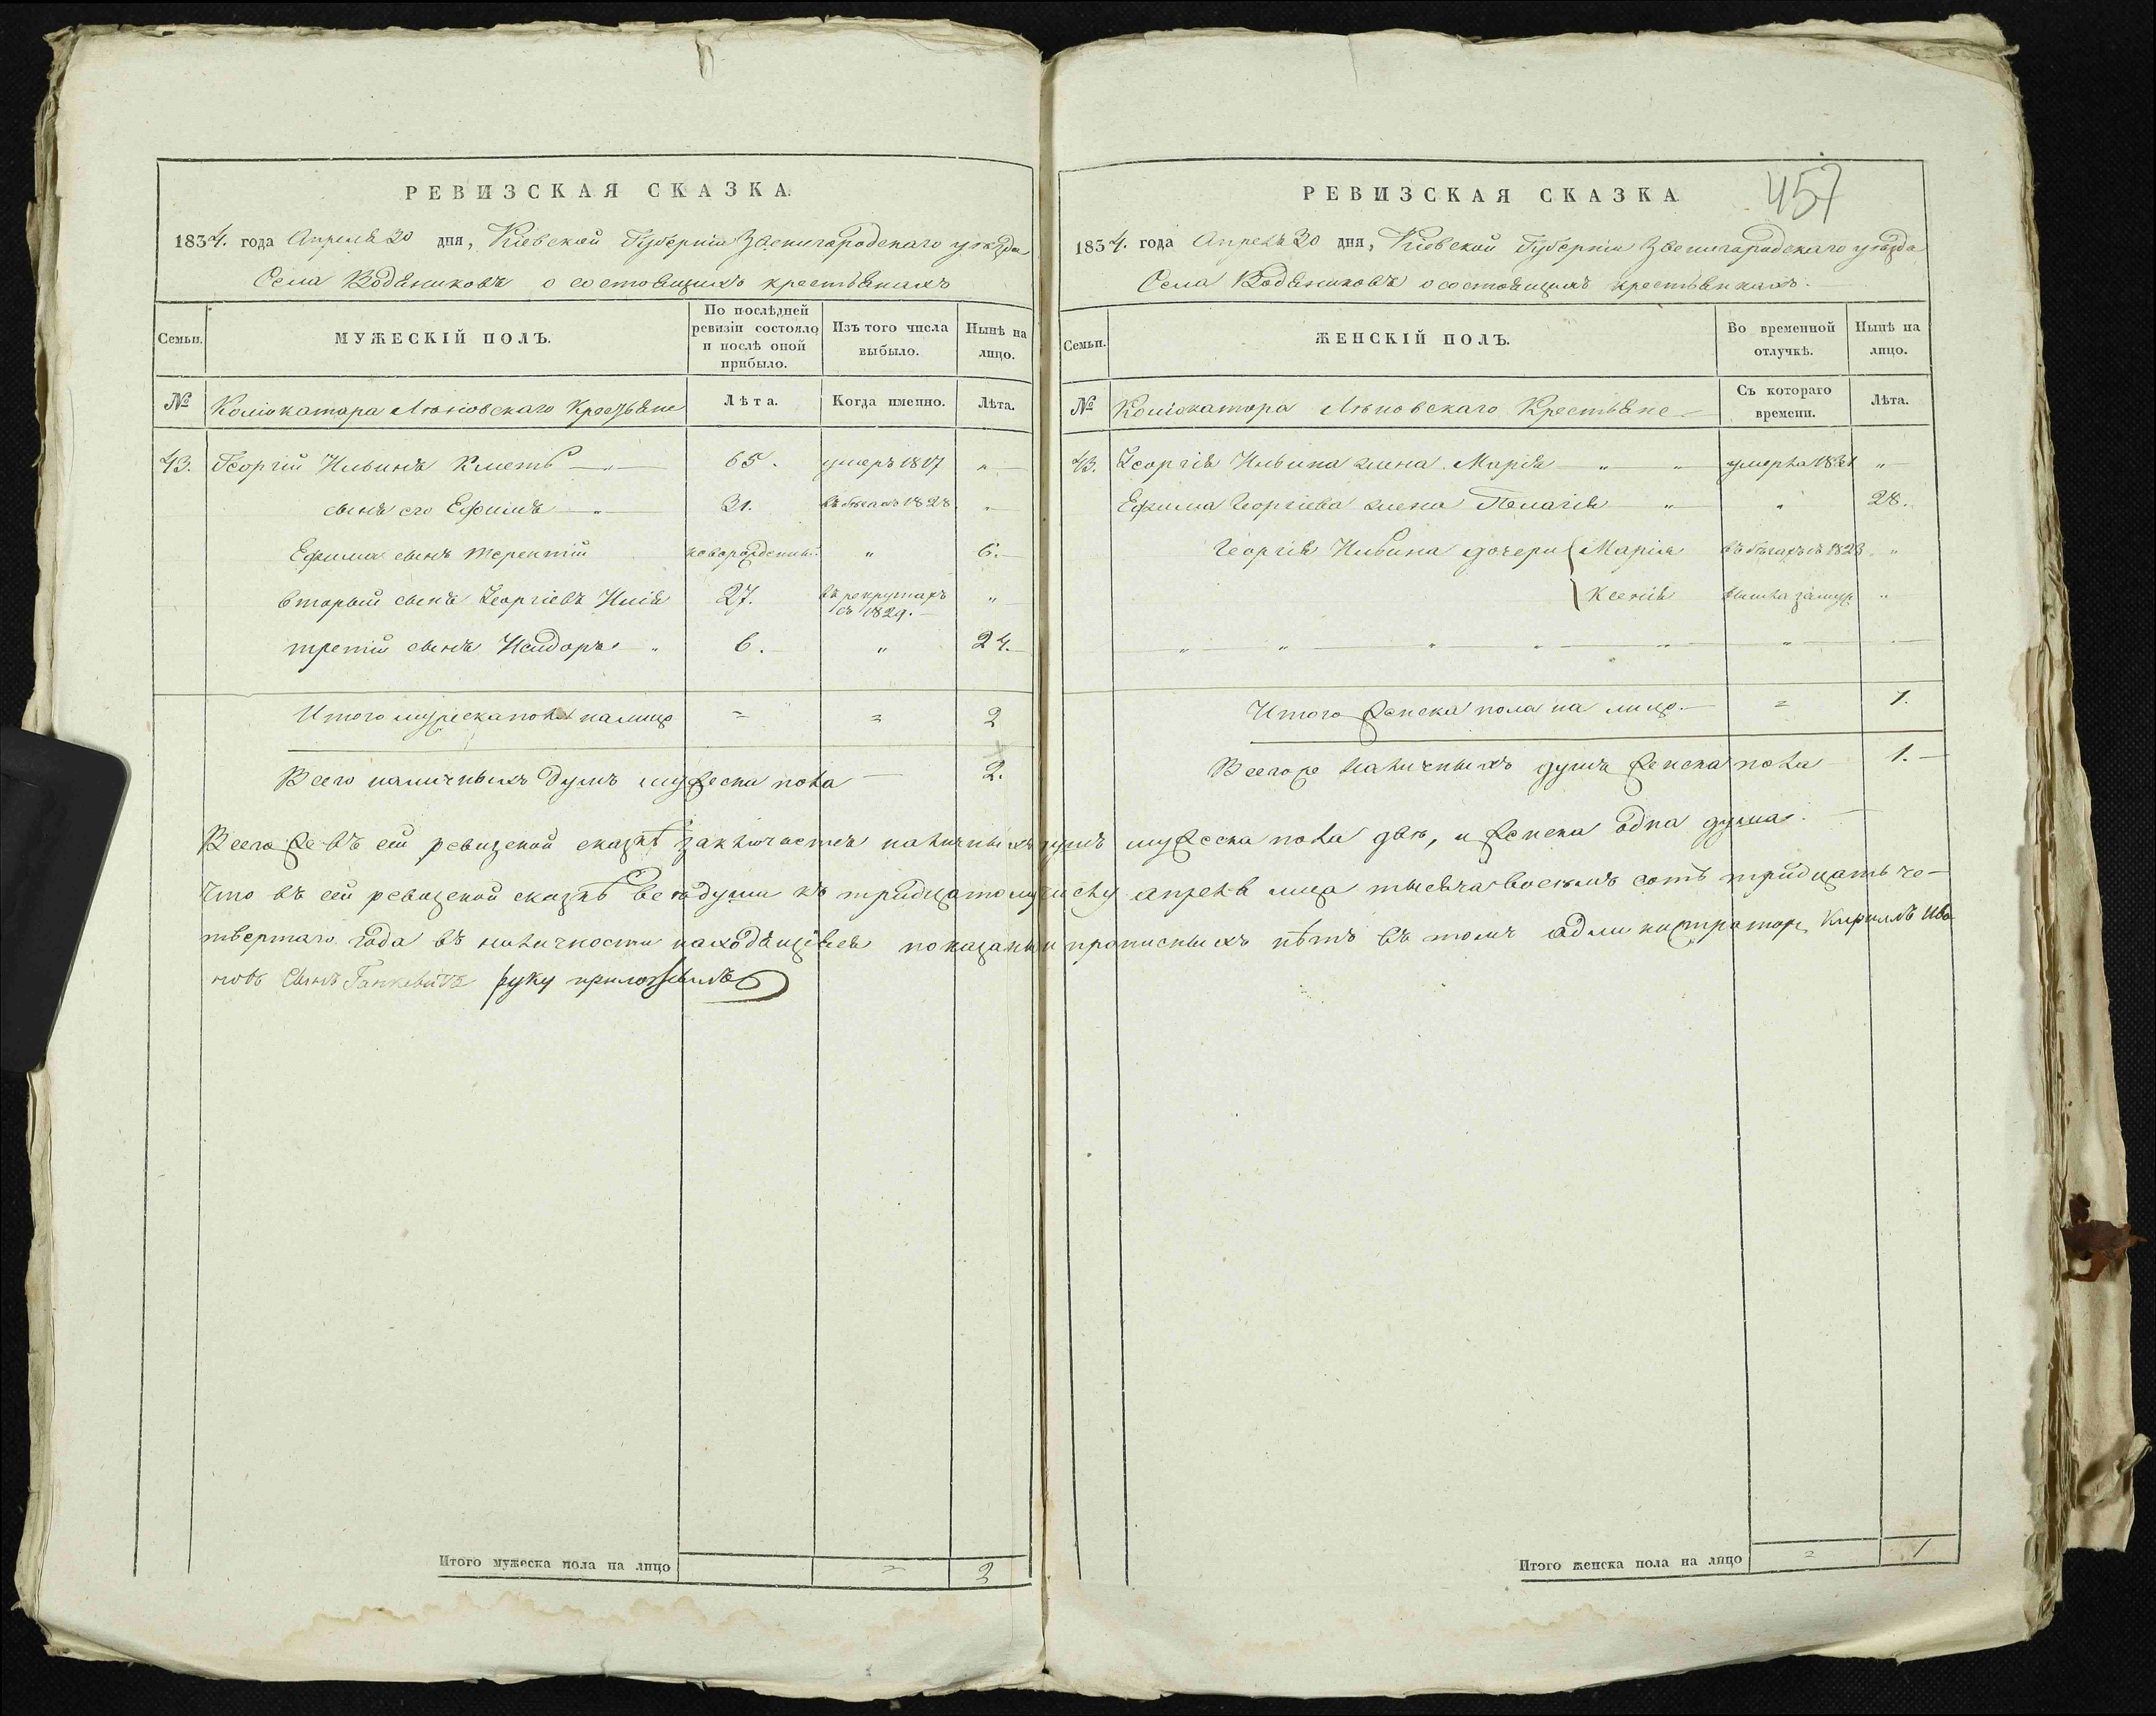 РЕВИЗСКАЯ СКАЗКА.
1834. года Апреля 30 дня, Кіевской Губерніи Звенигородскаго уѣзда
Села Водяниковъ о состоящихъ крестьянахъ
Семьи.
МУЖЕСКІЙ ПОЛЪ.
По послѣдней ревизіи состояло и послѣ оной прибыло.
Изъ того числа выбыло.
Нынѣ на лицо.
№
Крестьяне
Лѣта.
Когда именно.
Лѣта.
43. Георгій Ильинъ Кметь 65. умеръ 1817 "
сынъ его Ефимъ " 31. въ бѣгахъ 1828 "
Ефима сынъ Терентій новорожденный " 6.
вторый сынъ Георгіевъ Илія 27. въ рекрутахъ съ 1829. "
третій сынъ Исидоръ " 6. " 24.
Итого мужеска пола налицо = = 2
Всего наличныхъ душъ мужеска пола 2.
Итого мужеска пола на лицо = 2
457
РЕВИЗСКАЯ СКАЗКА
1834. года Апреля 30 дня, Кіевской Губерніи Звенигородскаго уѣзда
Села Водяниковъ о состоящихъ крестьянкахъ.
Семьи.
ЖЕНСКІЙ ПОЛЪ.
Во временной отлучкѣ.
Нынѣ на лицо.
№
Крестьяне
Съ котораго времени.
Лѣта.
43. Георгія Ильина жена Марія " " умерла 1831 "
Ефима Георгіева жена Пелагія " " 28.
Георгія Ильина дочери Марія въ бѣгахъ съ 1828 "
Ксенія вышла замуж. "
" " " " " "
Итого женска пола на лицо = 1.
Всего же наличныхъ душъ женска пола 1.
Всего же въ сей ревизской сказкѣ заключается наличныхъ душъ мужеска пола двѣ, и женска одна душа.
Что въ сей ревизской сказкѣ все души къ тридцатому числу апреля мца тысяча восемь сотъ тридцать че-
твертаго года въ наличности находящіеся показаны и прописныхъ нѣтъ въ томъ администраторъ Кирилъ Ива
новъ сынъ Ганкевичъ руку приложилъ
Итого женска пола на лицо = 1